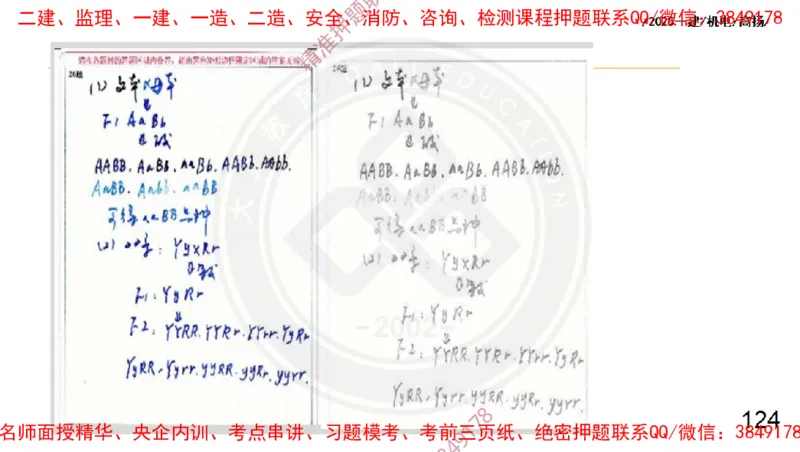 二建、监理、一建、一造、二造、安全、消防、咨询、检测课程押题联系QQ/微信：3849178
请在各题目的答题区域内作答，超出黑色矩形边框限定区域的答案无效
26题
(1) 父本×母本
F1 AaBb
AABB、AaBb、aaBb、AABb、AAbb、
AaBB、Aabb、aaBB
可得aaBB品种
(2) YyxRr
F1: YyRr
F2: YYRR、YYRr、YYrr、YyRr
YyRR、Yyrr、yyRR、yyRr、yyrr、
26题
(1) 父本×母本
F1 AaBb
AABB、AaBb、aaBb、AABb、AAbb、
AaBB、Aabb、aaBB
可得aaBB品种
(2) YyxRr
F1: YyRr
F2: YYRR、YYRr、YYrr、YyRr
YyRR、Yyrr、yyRR、yyRr、yyrr、
EDUCATION
2002
124
名师面授精华、央企内训、考点串讲、习题模考、考前三页纸、绝密押题联系QQ/微信：3849178